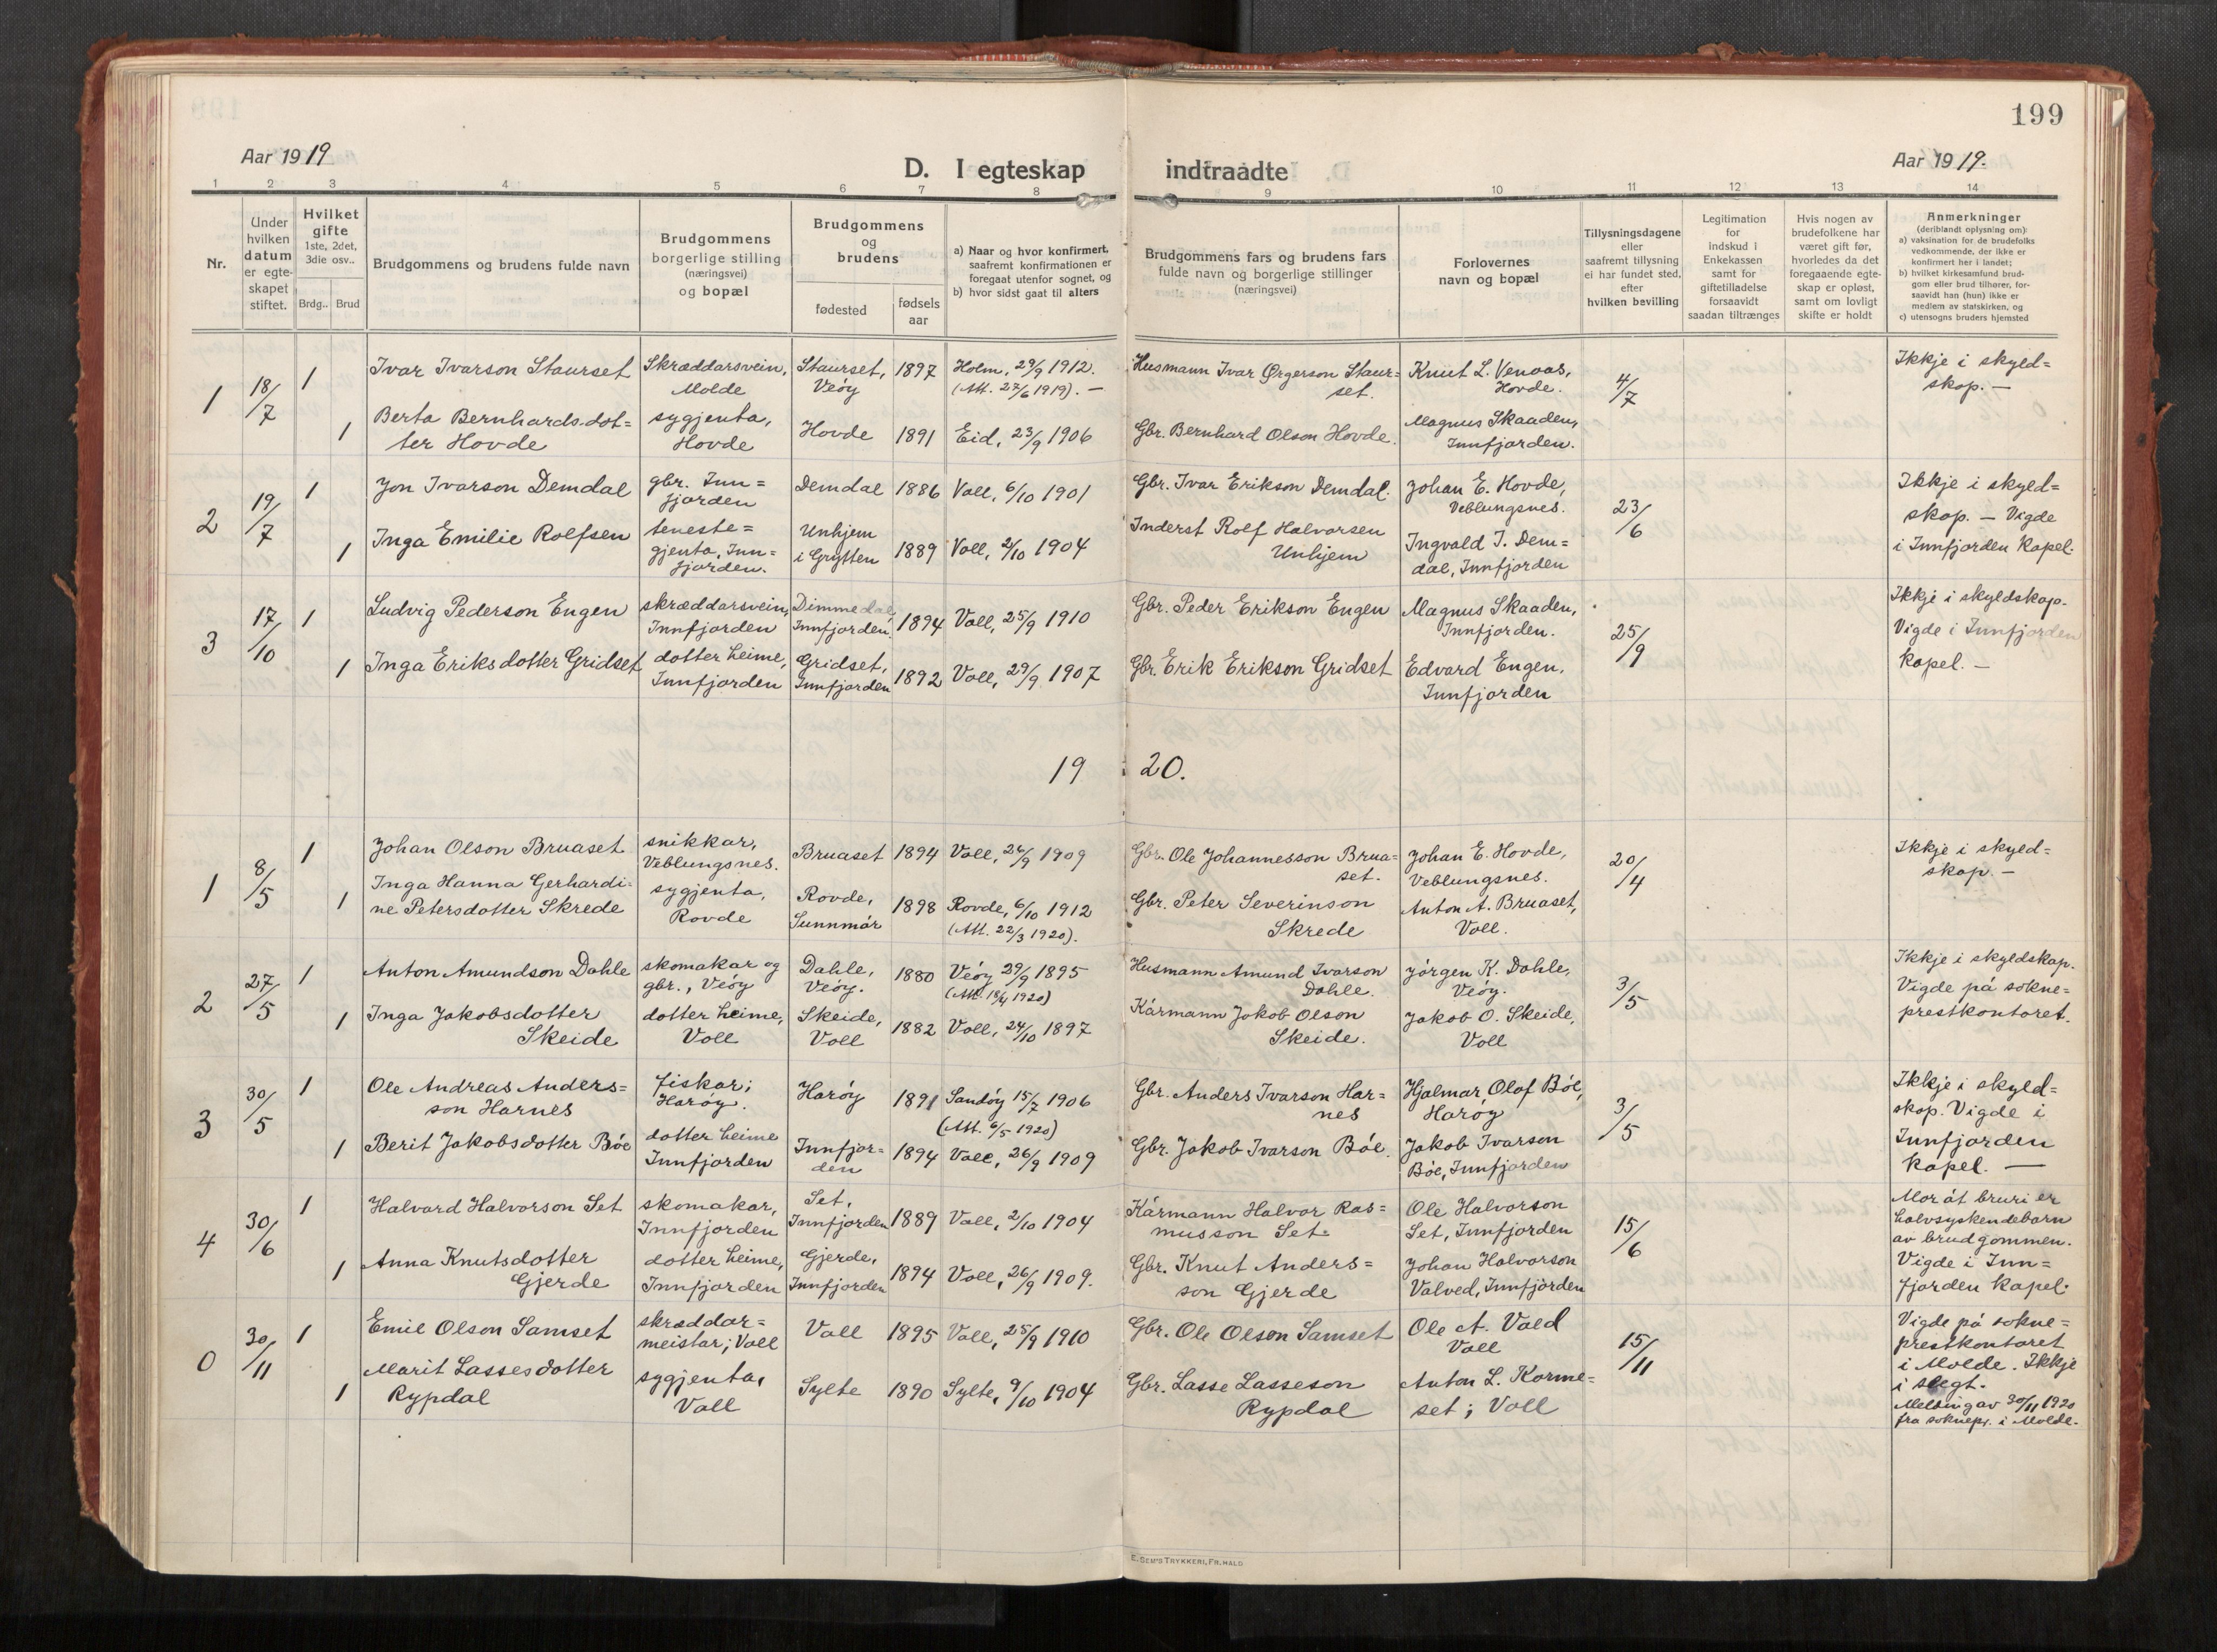 199
Aar 1919
D. I egteskap indtraadte
Aar 1919.
1 2 3 4 5 6 7 8 9 10 11 12 13 14
Nr.
Under
hvilken
datum
er egte-
skapet
stiftet.
Hvilket
gifte
1ste, 2det,
3die osv..
Brdg.. Brud
Brudgommens og brudens fulde navn
Brudgommens
borgerlige stilling
(næringsvei)
og bopæl
Brudgommens
og
brudens
fødested
fødsels
aar
a) Naar og hvor konfirmert,
saafremt konfirmationen er
foregaat utenfor sognet, og
b) hvor sidst gaat til alters
Brudgommens fars og brudens fars
fulde navn og borgerlige stillinger
(næringsvei)
Forlovernes
navn og bopæl
Tillysningsdagene
eller
saafremt tillysning
ei har fundet sted,
efter
hvilken bevilling
Legitimation
for
indskud i
Enkekassen
samt for
giftetilladelse
forsaavidt
saadan tiltrænges
Hvis nogen av
brudefolkene har
været gift før,
hvorledes da det
foregaaende egte-
skap er opløst,
samt om lovligt
skifte er holdt
Anmerkninger
(deriblandt oplysning om):
a) vaksination for de brudefolks
vedkommende, der ikke er
konfirmert her i landet;
b) hvilket kirkesamfund brud-
gom eller brud tilhører, for-
saavidt han (hun) ikke er
medlem av statskirken, og
c) utensogns bruders hjemsted
1
18/7
1
Ivar Ivarson Staurset
Skræddarsvein,
Molde
Staurset,
Veøy
1897
Holm, 29/9 1912.
(Att. 27/6 1919). —
Husmann Ivar Ørgerson Staur=
set.
Knut L. Venaas,
Hovde.
4/7
Ikkje i skyld=
skap. —
1
Berta Bernhards.dot=
ter Hovde
sygjenta,
Hovde
Hovde
1891
Eid, 23/9 1906
Gbr. Bernhard Olson Hovde.
Magnus Skaaden,
Innfjorden.
2
19/7
1
Jon Ivarson Demdal
gbr. Inn=
fjorden
Demdal
1886
Voll, 6/10 1901
Gbr. Ivar Erikson Demdal.
Johan E. Hovde,
Veblungsnes.
23/6
Ikkje i skyld=
skap. — Vigde
i Innfjorden Kapel.
1
Inga Emilie Rolfsen
teneste=
gjenta, Inn=
fjorden.
Unhjem
i Grytten
1889
Voll, 2/10 1904
Inderst Rolf Halvorsen
Unhjem
Ingvald I. Dem=
dal, Innfjorden
3
17/10
1
Ludvig Pederson Engen
skræddarsvein,
Innfjorden
Dimmedal,
Innfjorden.
1894
Voll, 25/9 1910
Gbr. Peder Erikson Engen
Magnus Skaaden,
Innfjorden.
25/9
Ikkje i skyldskap.
Vigde i Innfjorden
kapel. —
1
Inga Eriksdotter Gridset
dotter heime,
Innfjorden
Gridset,
Innfjorden
1892
Voll, 29/9 1907
Gbr. Erik Erikson Gridset
Edvard Engen,
Innfjorden
1920.
1
8/5
1
Johan Olson Bruaset
snikkar,
Veblungsnes.
Bruaset
1894
Voll, 26/9 1909
Gbr. Ole Johannesson Brua=
set.
Johan E. Hovde,
Veblungsnes.
20/4
Ikkje i skyld=
skap. —
1
Inga Hanna Gerhardi=
ne Petersdotter Skrede
sygjenta,
Rovde
Rovde,
Sunnmór
1898
Rovde, 6/10 1912
(Att. 22/3 1920).
Gbr. Peter Severinson
Skrede
Anton A. Bruaset,
Voll.
2
27/5
1
Anton Amundson Dahle
skomakar og
gbr., Veóy
Dahle,
Veóy.
1880
Veóy 29/9 1895
(Att. 18/4 1920)
Husmann Amund Ivarson
Dahle.
Jórgen K. Dahle,
Veóy.
3/5
Ikkje i skyldskap.
Vigde på sokne=
prestkontoret.
1
Inga Jakobsdotter
Skeide
dotter heime,
Voll
Skeide,
Voll
1882
Voll, 24/10 1897
Kármann Jakob Olson
Skeide.
Jakob O. Skeide,
Voll
3
30/5
1
Ole Andreas Anders=
son Harnes
fiskar;
Haróy.
Haróy
1891
Sandóy 15/7 1906
(Att. 6/5 1920)
Gbr. Anders Ivarson Har=
nes
Hjalmar Olaf Bóe,
Haróy
3/5
Ikkje i skyld=
skap. Vigde i
Innfjorden
kapel. —
1
Berit Jakobsdotter Bóe
dotter heime
Innfjorden
Innfjor=
den
1894
Voll, 26/9 1909
Gbr. Jakob Ivarson Bóe.
Jakob Ivarson
Bóe, Innfjorden
4
30/6
1
Halvard Halvorson Set
skomakar,
Innfjorden
Set,
Innfjorden
1889
Voll, 2/10 1904
Kármann Halvor Ras=
musson Set.
Ole Halvorson
Set, Innfjorden
15/6
Mor át bruri er
halvsyskendebarn
av brudgommen.
Vigde i Inn=
fjorden kapel.
1
Anna Knutsdotter
Gjerde
dotter heime,
Innfjorden
Gjerde,
Innfjorden
1894
Voll, 26/9 1909.
Gbr. Knut Anders=
son Gjerde
Johan Halvorson
Valved, Innfjorden
0
30/11
1
Emil Olson Samset
skræddar=
meistar; Voll
Voll
1895
Voll, 25/9 1910
Gbr. Ole Olson Samset
Ole A. Vold
Voll
15/11
Vigde på sokne=
prestkontoret
i Molde. Ikkje
i slegt.
Melding av 30/11 1920
fra soknepr. i Molde.
1
Marit Lassesdotter
Rypdal
sygjenta,
Voll
Sylte
1890
Sylte, 9/10 1904
Gbr. Lasse Lasseson
Rypdal
Anton L. Korme=
set; Voll
E. SEM'S TRYKKERI, FR.HALD